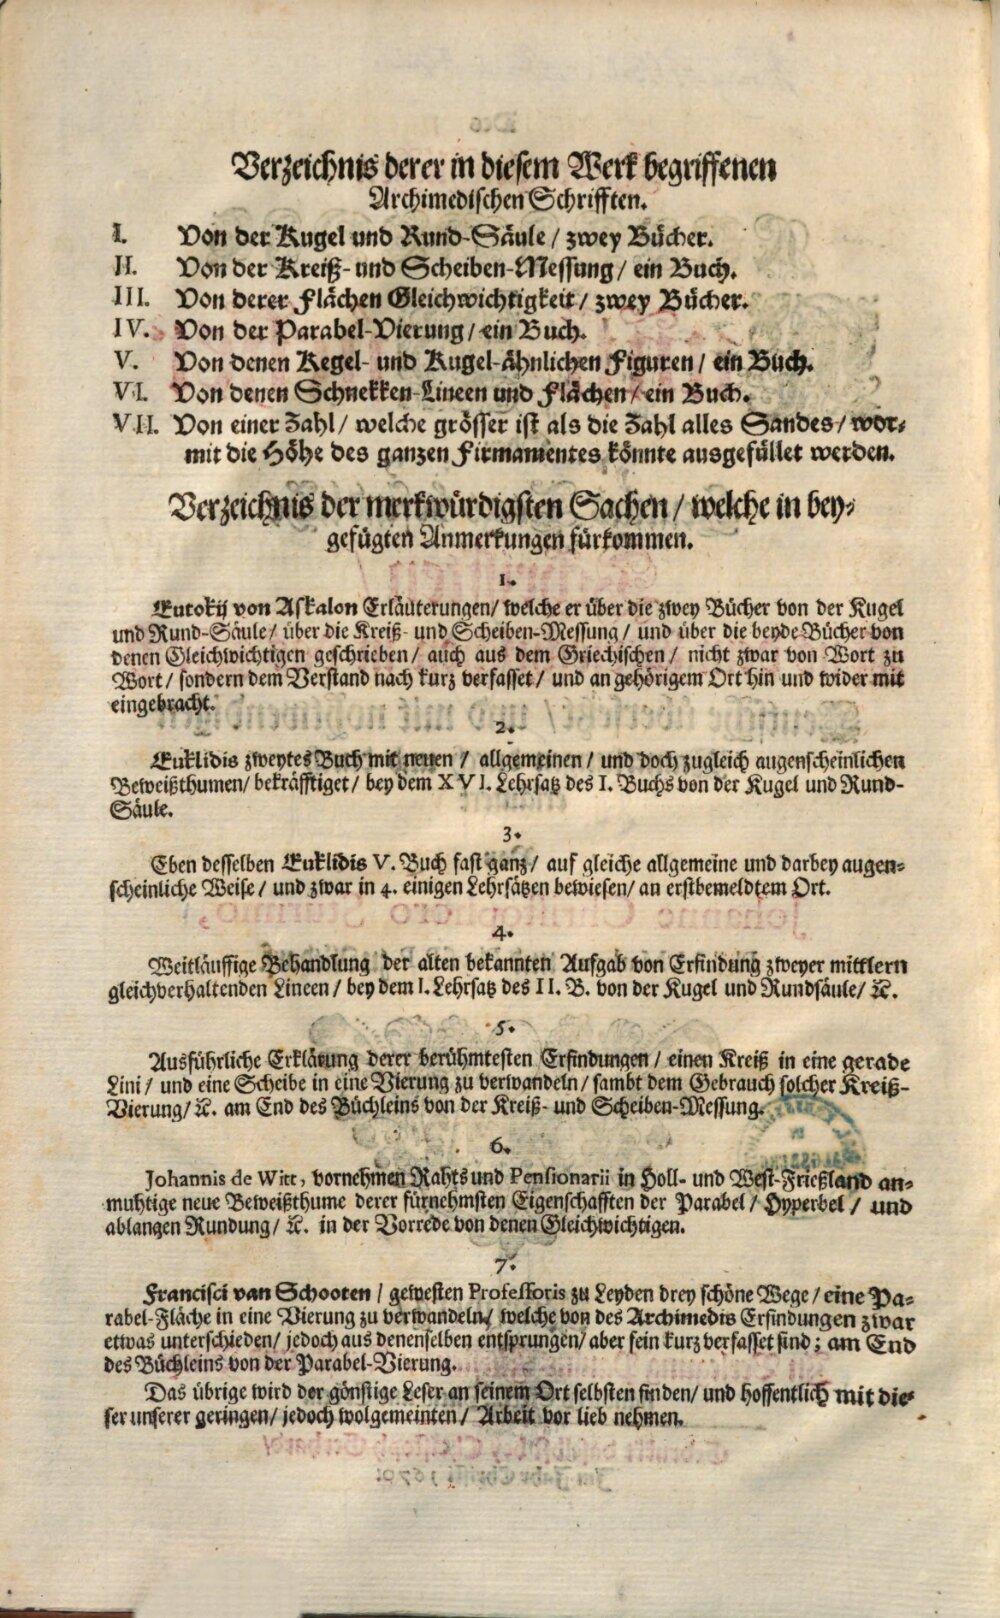 Verzeichnis derer in diesem Werk begriffenen
Archimedischen Schrifften.
I. Von der Kugel und Rund-Säule / zwey Bücher.
II. Von der Kreiß- und Scheiben-Messung / ein Buch.
III. Von derer Flächen Gleichwichtigkeit / zwey Bücher.
IV. Von der Parabel-Vierung / ein Buch.
V. Von denen Kegel- und Kugel-ähnlichen Figuren / ein Buch.
VI. Von denen Schnekken-Lineen und Flächen / ein Buch.
VII. Von einer Zahl / welche grösser ist als die Zahl alles Sandes / wor-
mit die Höhe des ganzen Firmamentes könnte ausgefüllet werden.
Verzeichnis der merkwürdigsten Sachen / welche in bey-
gefügten Anmerkungen fürkommen.
1.
Eutokij von Askalon Erläuterungen / welche er über die zwey Bücher von der Kugel
und Rund-Säule / über die Kreiß- und Scheiben-Messung / und über die beyde Bücher von
denen Gleichwichtigen geschrieben / auch aus dem Griechischen / nicht zwar von Wort zu
Wort / sondern dem Verstand nach kurz verfasset / und an gehörigem Ort hin und wider mit
eingebracht.
2.
Euklidis zweytes Buch mit neuen / allgemeinen / und doch zugleich augenscheinlichen
Beweißthumen / bekräfftiget / bey dem XVI. Lehrsatz des I. Buchs von der Kugel und Rund-
Säule.
3.
Eben desselben Euklidis V. Buch fast ganz / auf gleiche allgemeine und darbey augen-
scheinliche Weise / und zwar in 4. einigen Lehrsätzen bewiesen / an erstbemeldtem Ort.
4.
Weitläuffige Behandlung der alten bekannten Aufgab von Erfindung zweyer mittlern
gleichverhaltenden Lineen / bey dem I. Lehrsatz des II. B. von der Kugel und Rundsäule / &c.
5.
Ausführliche Erklärung derer berühmtesten Erfindungen / einen Kreiß in eine gerade
Lini / und eine Scheibe in eine Vierung zu verwandeln / sambt dem Gebrauch solcher Kreiß-
Vierung / &c. am End des Büchleins von der Kreiß- und Scheiben-Messung.
6.
Johannis de Witt, vornehmen Rahts und Pensionarii in Holl- und West-Frießland an-
muhtige neue Beweißthume derer fürnehmsten Eigenschafften der Parabel / Hyperbel / und
ablangen Rundung / &c. in der Vorrede von denen Gleichwichtigen.
7.
Francisci van Schooten / gewesten Professoris zu Leyden drey schöne Wege / eine Pa-
rabel-Fläche in eine Vierung zu verwandeln / welche von des Archimedis Erfindungen zwar
etwas unterschieden / jedoch aus denenselben entsprungen / aber fein kurz verfasset sind ; am End
des Büchleins von der Parabel-Vierung.
Das übrige wird der günstige Leser an seinem Ort selbsten finden / und hoffentlich mit die-
ser unserer geringen / jedoch wolgemeinten / Arbeit vor lieb nehmen.